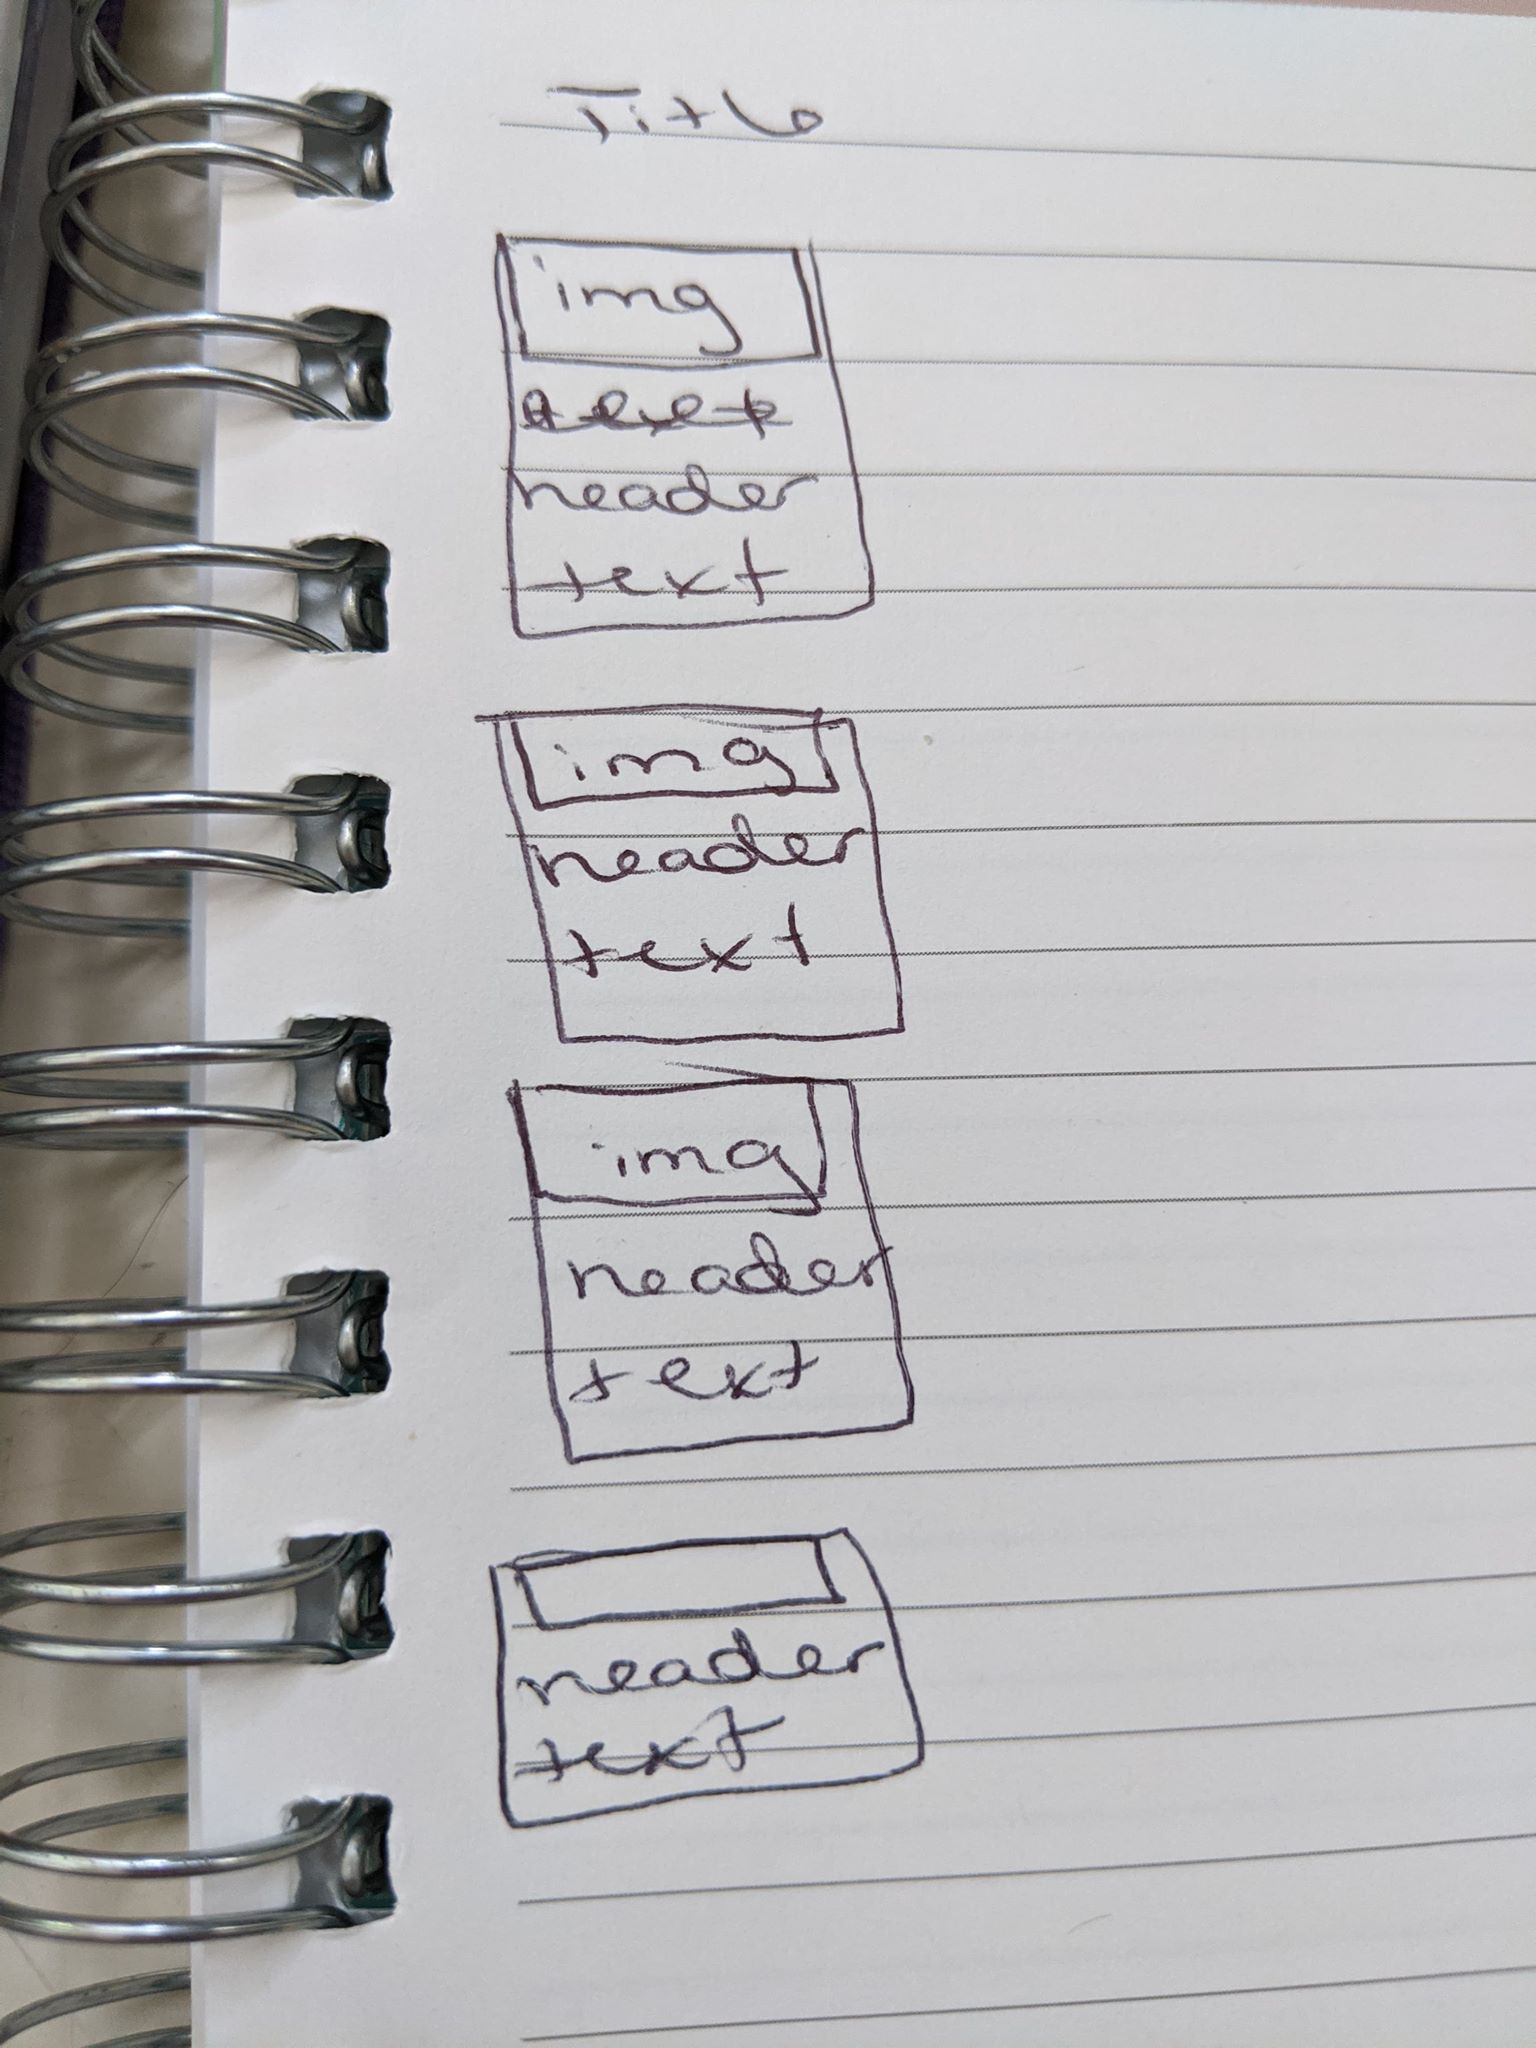 Title
img
header
text
img
header
text
img
header
text
header
text